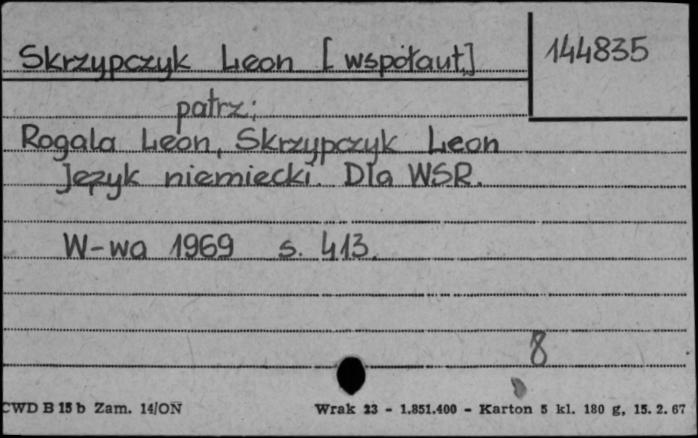 Skrzypczyk Leon [współaut]
144835
patrz:
Rogala Leon, Skrzypczyk Leon
Język niemiecki. Dla WSR.
W-wa 1969 s. 413.
8
CWD B 15 b Zam. 14/ON
Wrak 23 - 1.851.400 - Karton 5 kl. 180 g, 15. 2. 67